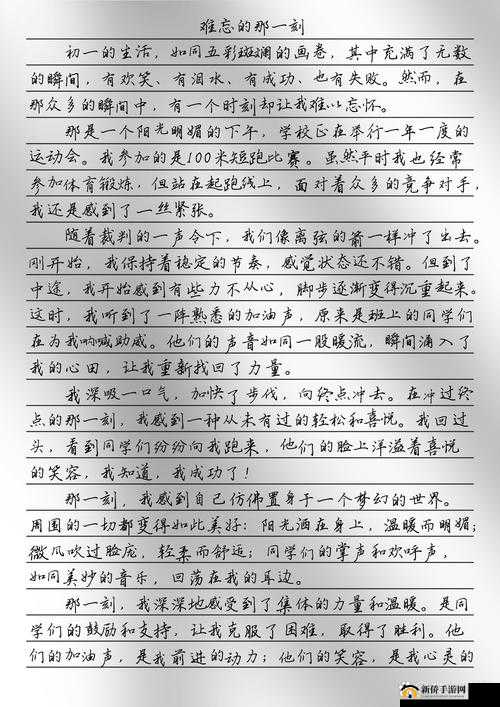 难忘的那一刻
初一的生活，如同五彩斑斓的画卷，其中充满了无数
的瞬间，有欢笑、有泪水、有成功、也有失败。然而，在
那众多的瞬间中，有一个时刻却让我难以忘怀。
那是一个阳光明媚的下午，学校正在举行一年一度的
运动会。我参加的是100米短跑比赛。虽然平时我也经常
参加体育锻炼，但站在起跑线上，面对着众多的竞争对手，
我还是感到了一丝紧张。
随着裁判的一声令下，我们像离弦的箭一样冲了出去。
刚开始，我保持着稳定的节奏，感觉状态还不错。但到了
中途，我开始感到有些力不从心，脚步逐渐变得沉重起来。
这时，我听到了一阵熟悉的加油声，原来是班上的同学们
在为我呐喊助威。他们的声音如同一股暖流，瞬间涌入了
我的心田，让我重新找回了力量。
我深吸一口气，加快了步伐，向终点冲去。在冲过终
点的那一刻，我感到一种从未有过的轻松和喜悦。我回过
头，看到同学们纷纷向我跑来，他们的脸上洋溢着喜悦
的笑容，我知道，我成功了！
那一刻，我感到自己仿佛置身于一个梦幻的世界。
周围的一切都变得如此美好：阳光洒在身上，温暖而明媚；
微风吹过脸庞，轻柔而舒适；同学们的掌声和欢呼声，
如同美妙的音乐，回荡在我的耳边。
那一刻，我深深地感受到了集体的力量和温暖。是同
学们的鼓励和支持，让我克服了困难，取得了胜利。他
们的加油声，是我前进的动力；他们的笑容，是我心灵的
新侨手游网